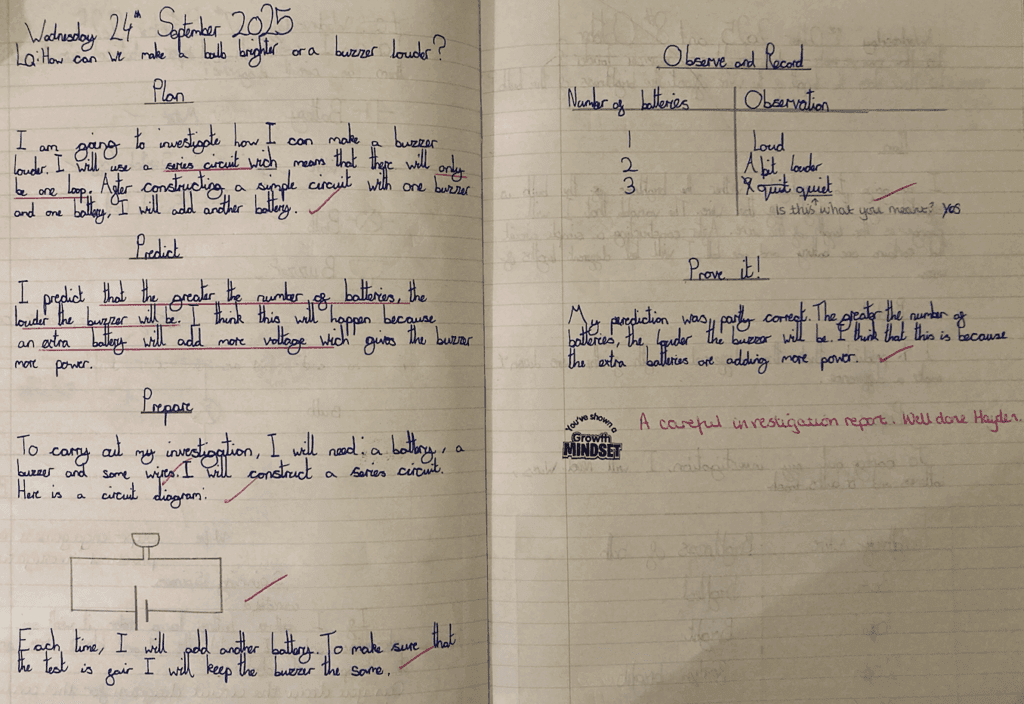 Wednesday 24th September 2025
LQ: How can we make a bulb brighter or a buzzer louder?
Plan
I am going to investigate how I can make a buzzer
louder. I will use a series circuit wich means that there will only
be one loop. After constructing a simple circuit with one buzzer
and one battery, I will add another battery.
Predict
I predict that the greater the number of batteries, the
louder the buzzer will be. I think this will happen because
an extra battery will add more voltage wich gives the buzzer
more power.
Prepare
To carry out my investigation, I will need: a battery, a
buzzer and some wires. I will construct a series circuit.
Here is a circuit diagram:
Each time, I will add another battery. To make sure that
the test is fair I will keep the buzzer the same.
Observe and Record
Number of batteries Observation
1 Loud
2 A bit louder
3 quit quiet
Is this what you meant? yes
Prove it!
My prediction was partly correct. The greater the number of
batteries, the louder the buzzer will be. I think that this is because
the extra batteries are adding more power.
You've shown a
Growth
MINDSET
A careful investigation report. Well done Hayden.